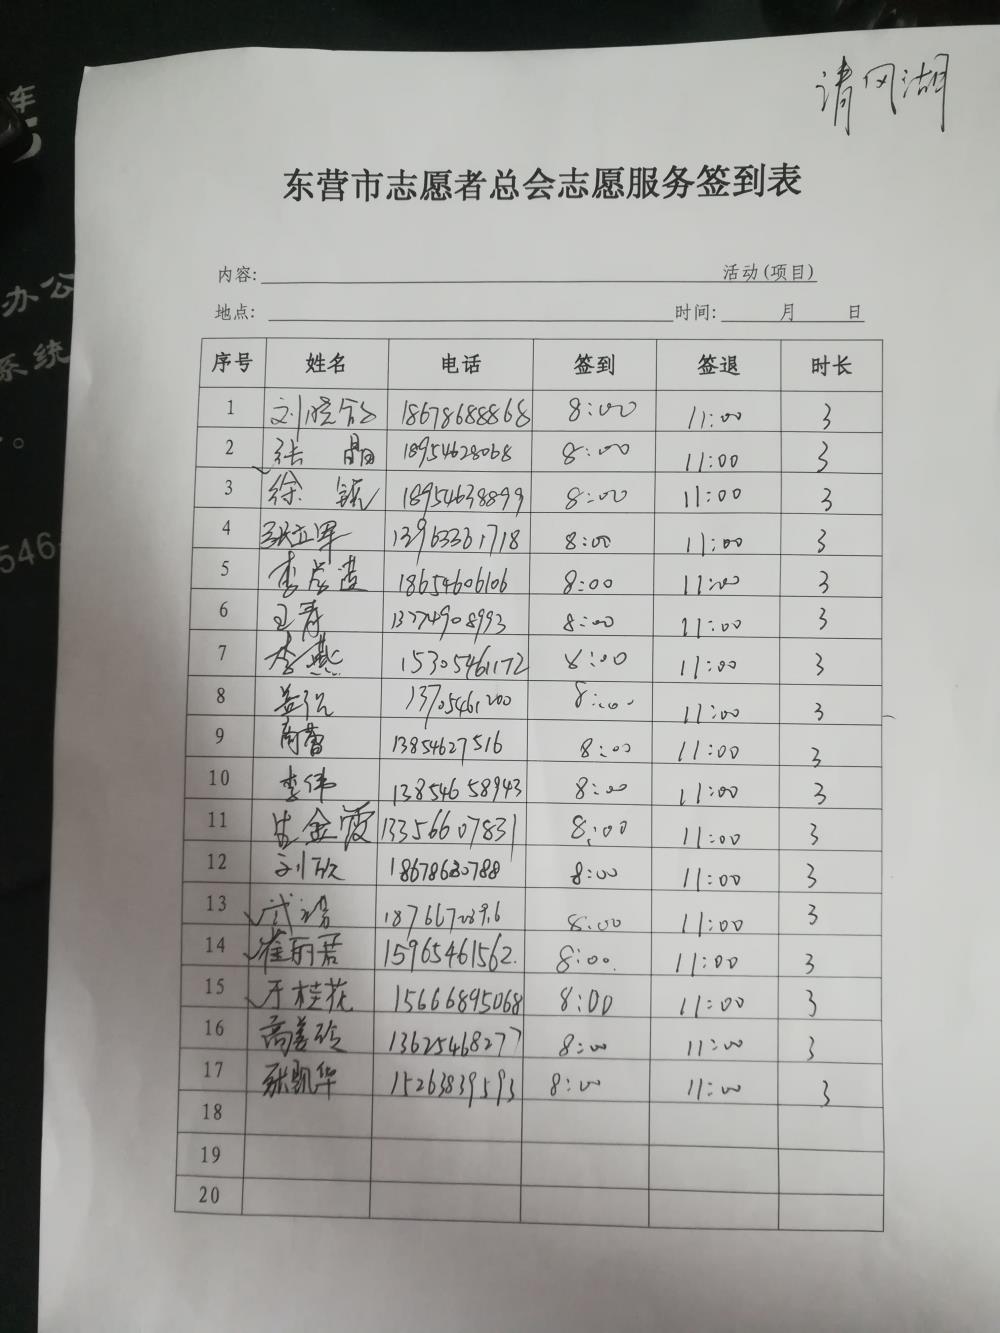 车
办公
系统
546
清风湖
东营市志愿者总会志愿服务签到表
内容: 活动(项目)
地点: 时间: 月 日
序号 姓名 电话 签到 签退 时长
1 刘晓 18678688868 8:00 11:00 3
2 张晶 18954628068 8:00 11:00 3
3 徐 18954638899 8:00 11:00 3
4 张立军 13963361718 8:00 11:00 3
5 李彦 18654606106 8:00 11:00 3
6 王青 13774908993 8:00 11:00 3
7 李燕 15305461172 8:00 11:00 3
8 13705461200 8:00 11:00 3
9 商蕾 13854627516 8:00 11:00 3
10 李伟 13854658943 8:00 11:00 3
11 金霞 13356607831 8:00 11:00 3
12 刘欣 18678630788 8:00 11:00 3
13 武 8:00 11:00 3
14 崔丽君 15965461562. 8:00 11:00 3
15 于桂花 15666895068 8:00 11:00 3
16 高美玲 13625468277 8:00 11:00 3
17 张凯华 15263839593 8:00 11:00 3
18
19
20